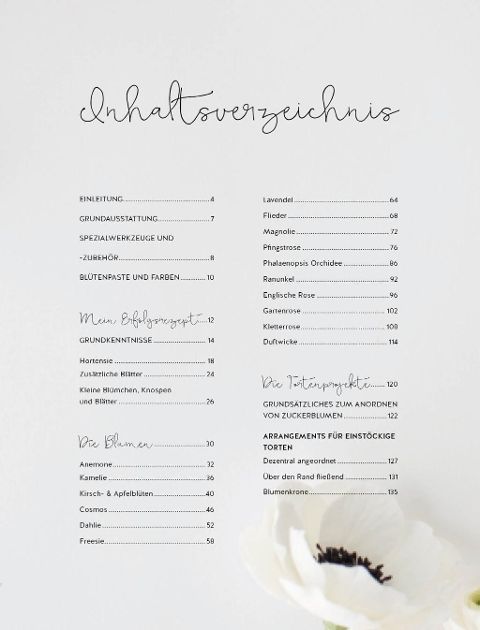 Inhaltsverzeichnis
EINLEITUNG 4
GRUNDAUSSTATTUNG 7
SPEZIALWERKZEUGE UND
-ZUBEHÖR 8
BLÜTENPASTE UND FARBEN 10
Mein Erfolgsrezept 12
GRUNDKENNTNISSE 14
Hortensie 18
Zusätzliche Blätter 24
Kleine Blümchen, Knospen
und Blätter 26
Die Blumen 30
Anemone 32
Kamelie 36
Kirsch- & Apfelblüten 40
Cosmos 46
Dahlie 52
Freesie 58
Lavendel 64
Flieder 68
Magnolie 72
Pfingstrose 76
Phalaenopsis Orchidee 86
Ranunkel 92
Englische Rose 96
Gartenrose 102
Kletterrose 108
Duftwicke 114
Die Tortenprojekte 120
GRUNDSÄTZLICHES ZUM ANORDNEN
VON ZUCKERBLUMEN 122
ARRANGEMENTS FÜR EINSTÖCKIGE
TORTEN
Dezentral angeordnet 127
Über den Rand fließend 131
Blumenkrone 135